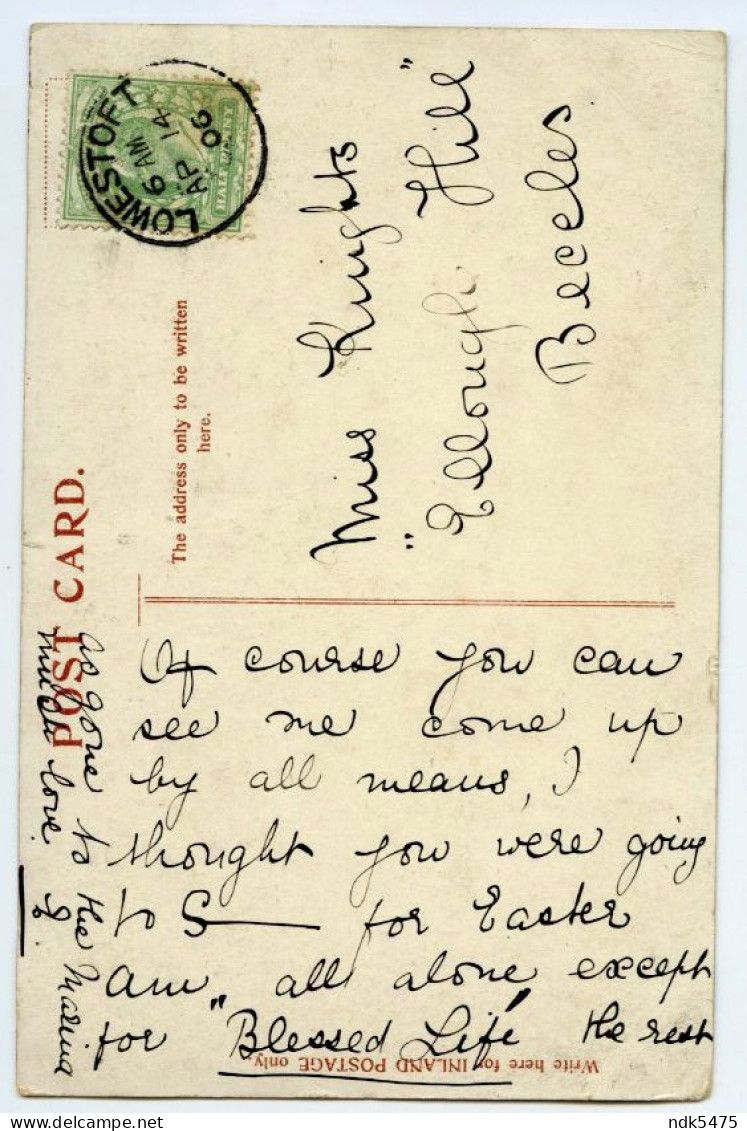 POST CARD.
The address only to be written
here.
LOWESTOFT
6 AM
AP 14
06
HALF PENNY
Miss Knights
"Ellough Hill"
Beccles
Of course you can
see me come up
by all means, I
thought you were going
to S—— for Easter
am all alone except
for "Blessed Life" the rest
as gone to the Marina
much love
Write here for INLAND POSTAGE only.
delcampe.net
ndk5475